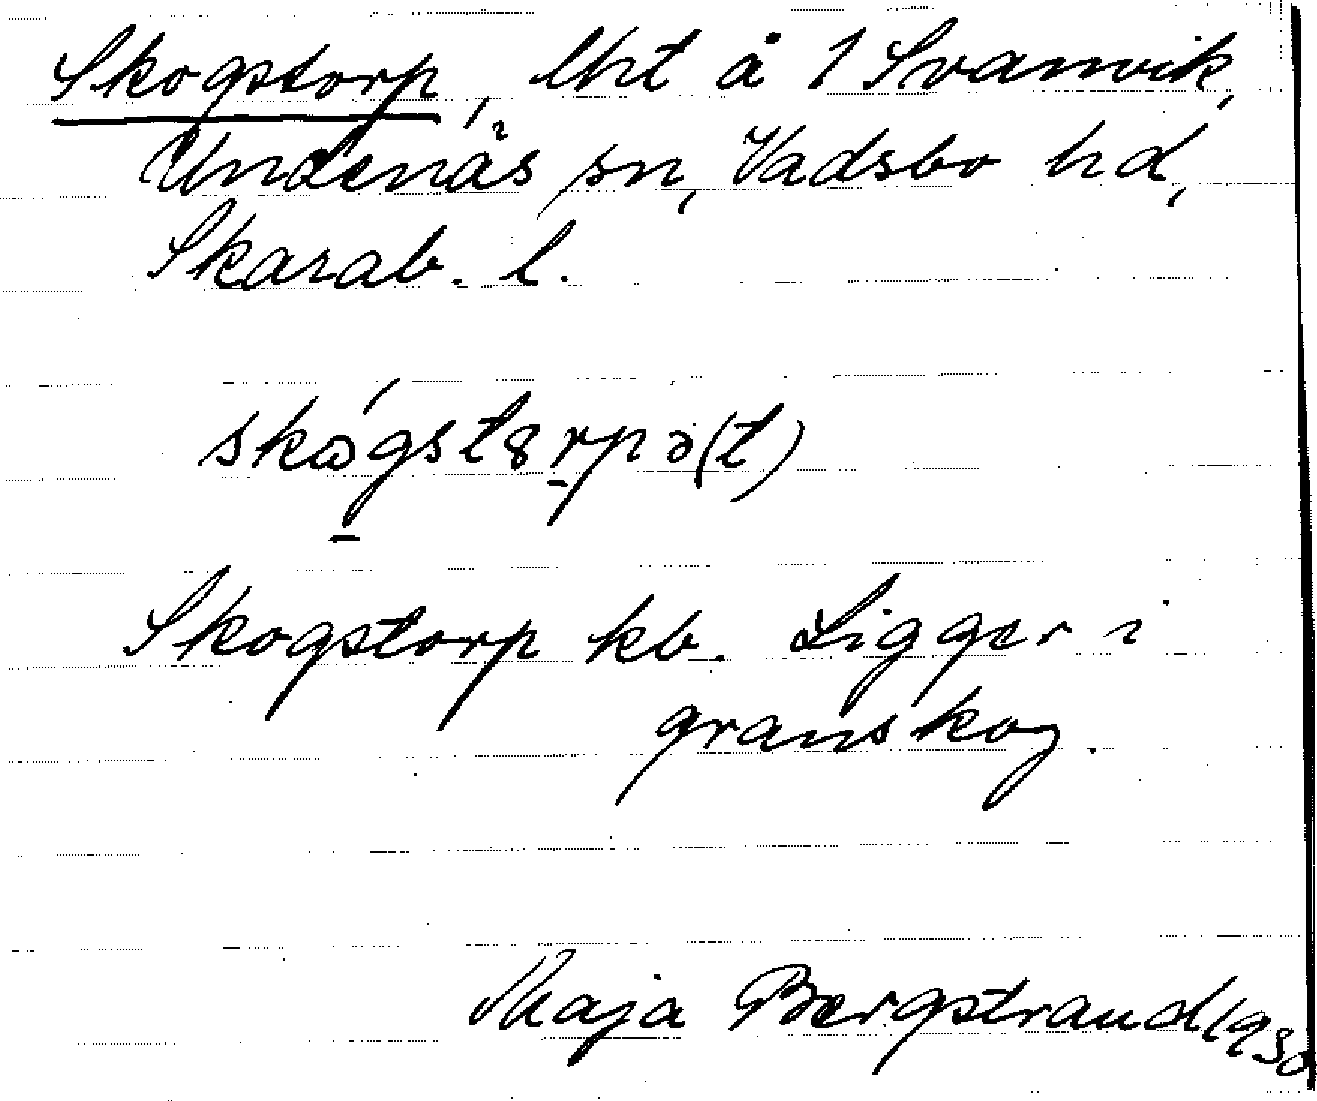 Skogstorp, lht å 1 Svanvik,
Undenäs sn, Vadsbo hd,
Skarab. l.
skógstȣrpə(t)
Skogstorp kb. Ligger i
granskog.
Maja Bergstrand 1930